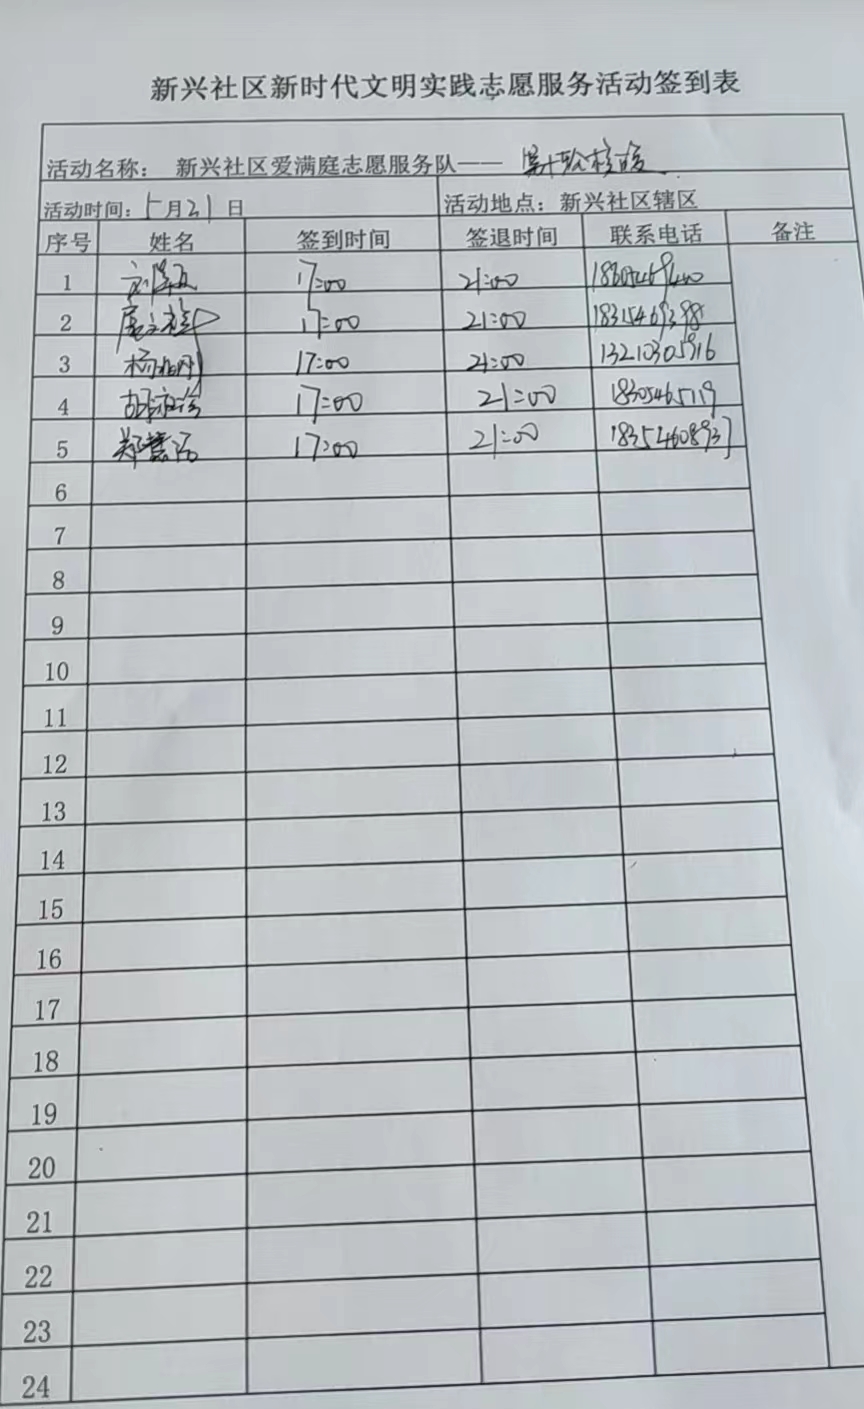 新兴社区新时代文明实践志愿服务活动签到表
活动名称： 新兴社区爱满庭志愿服务队—— 第十轮核酸
活动时间：5月21日 活动地点：新兴社区辖区
序号 姓名 签到时间 签退时间 联系电话 备注
1 17:00 21:00
2 17:00 21:00 18315469398
3 17:00 21:00 13210305916
4 17:00 21:00 18305465119
5 郑慧 17:00 21:00 18354608937
6
7
8
9
10
11
12
13
14
15
16
17
18
19
20
21
22
23
24